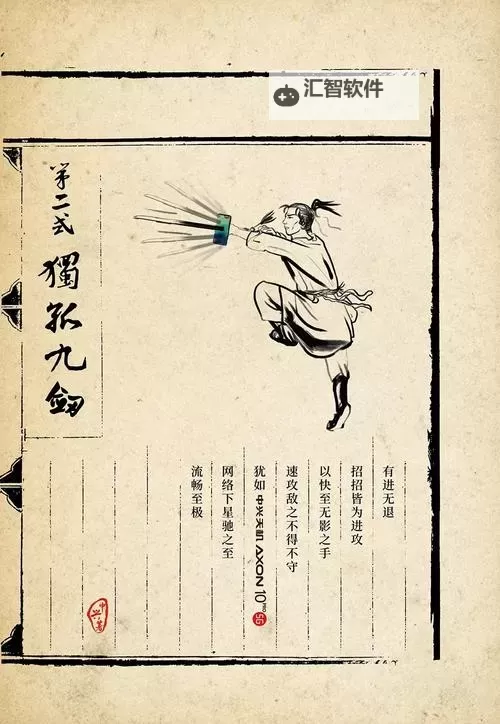 汇智软件
第二式
獨孤九劍
有进无退
招招皆为进攻
以快至无影之手
速攻敌之不得不守
犹如中兴天机AXON 10 PRO 5G
网络下星驰之至
流畅至极